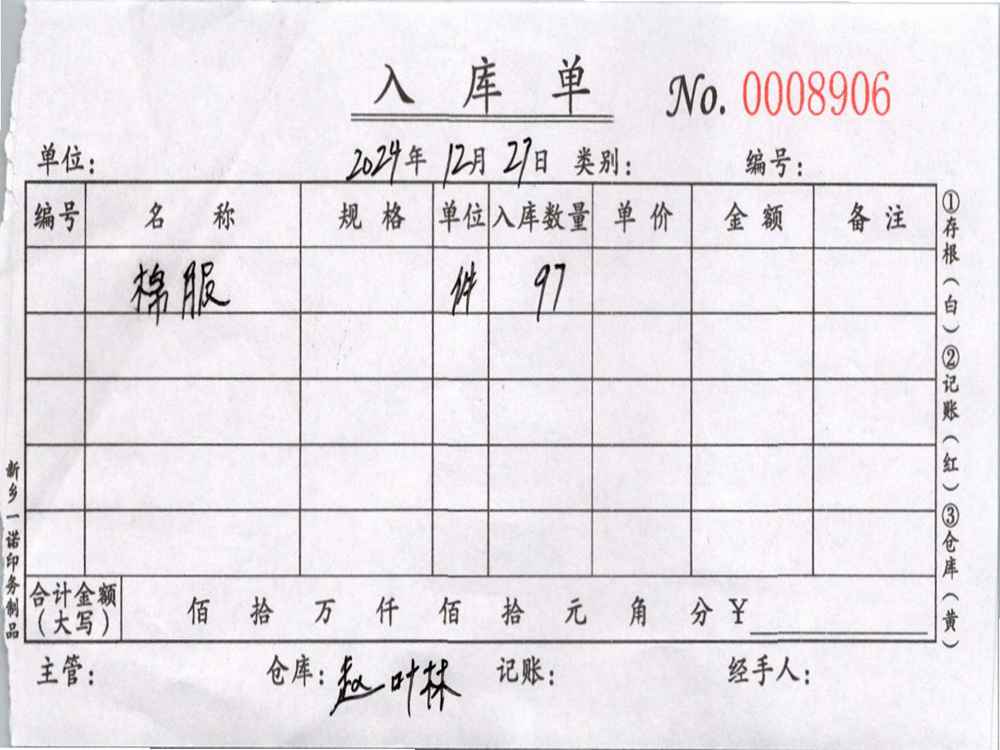 入库单 No. 0008906
单位： 2024年 12月 27日 类别： 编号：
编号 名称 规格 单位 入库数量 单价 金额 备注
棉服 件 97
合计金额（大写） 佰 拾 万 仟 佰 拾 元 角 分 ￥
主管： 仓库：赵叶林 记账： 经手人：
①存根（白）②记账（红）③仓库（黄）
新乡一诺印务制品